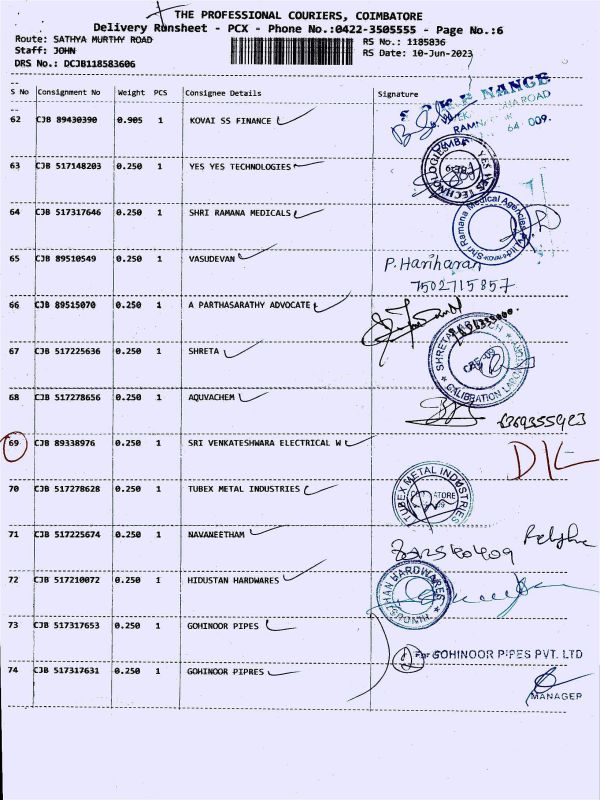 THE PROFESSIONAL COURIERS, COIMBATORE
Delivery Runsheet - PCX - Phone No.:0422-3505555 - Page No.:6
Route: SATHYA MURTHY ROAD
Staff: JOHN
DRS No.: DCJB118583606
RS No.: 1185836
RS Date: 10-Jun-2023
S No Consignment No Weight PCS Consignee Details Signature
62 CJB 89430390 0.905 1 KOVAI SS FINANCE
RAMNAGAR
64 009.
63 CJB 517148203 0.250 1 YES YES TECHNOLOGIES
YES YES TECHNOLOGIES
64 CJB 517317646 0.250 1 SHRI RAMANA MEDICALS
Shri Ramana Medical Agencies
65 CJB 89510549 0.250 1 VASUDEVAN
P. Hariharan
7502715857
66 CJB 89515070 0.250 1 A PARTHASARATHY ADVOCATE
67 CJB 517225636 0.250 1 SHRETA
SHRETA
CALIBRATION
68 CJB 517278656 0.250 1 AQUVACHEM
69 CJB 89338976 0.250 1 SRI VENKATESHWARA ELECTRICAL W
70 CJB 517278628 0.250 1 TUBEX METAL INDUSTRIES
TUBEX METAL INDUSTRIES
71 CJB 517225674 0.250 1 NAVANEETHAM
72 CJB 517210072 0.250 1 HIDUSTAN HARDWARES
HARDWARES
73 CJB 517317653 0.250 1 GOHINOOR PIPES
For GOHINOOR PIPES PVT. LTD
74 CJB 517317631 0.250 1 GOHINOOR PIPRES
MANAGER